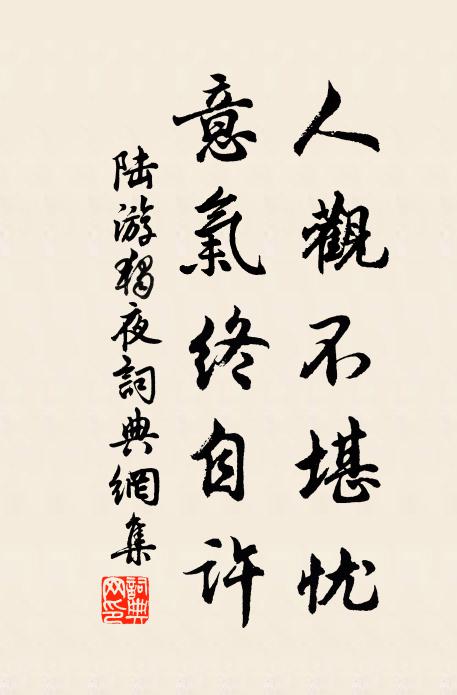 人觀不堪忧
意氣終自許
陸游獨夜詞典網集
詞典网印